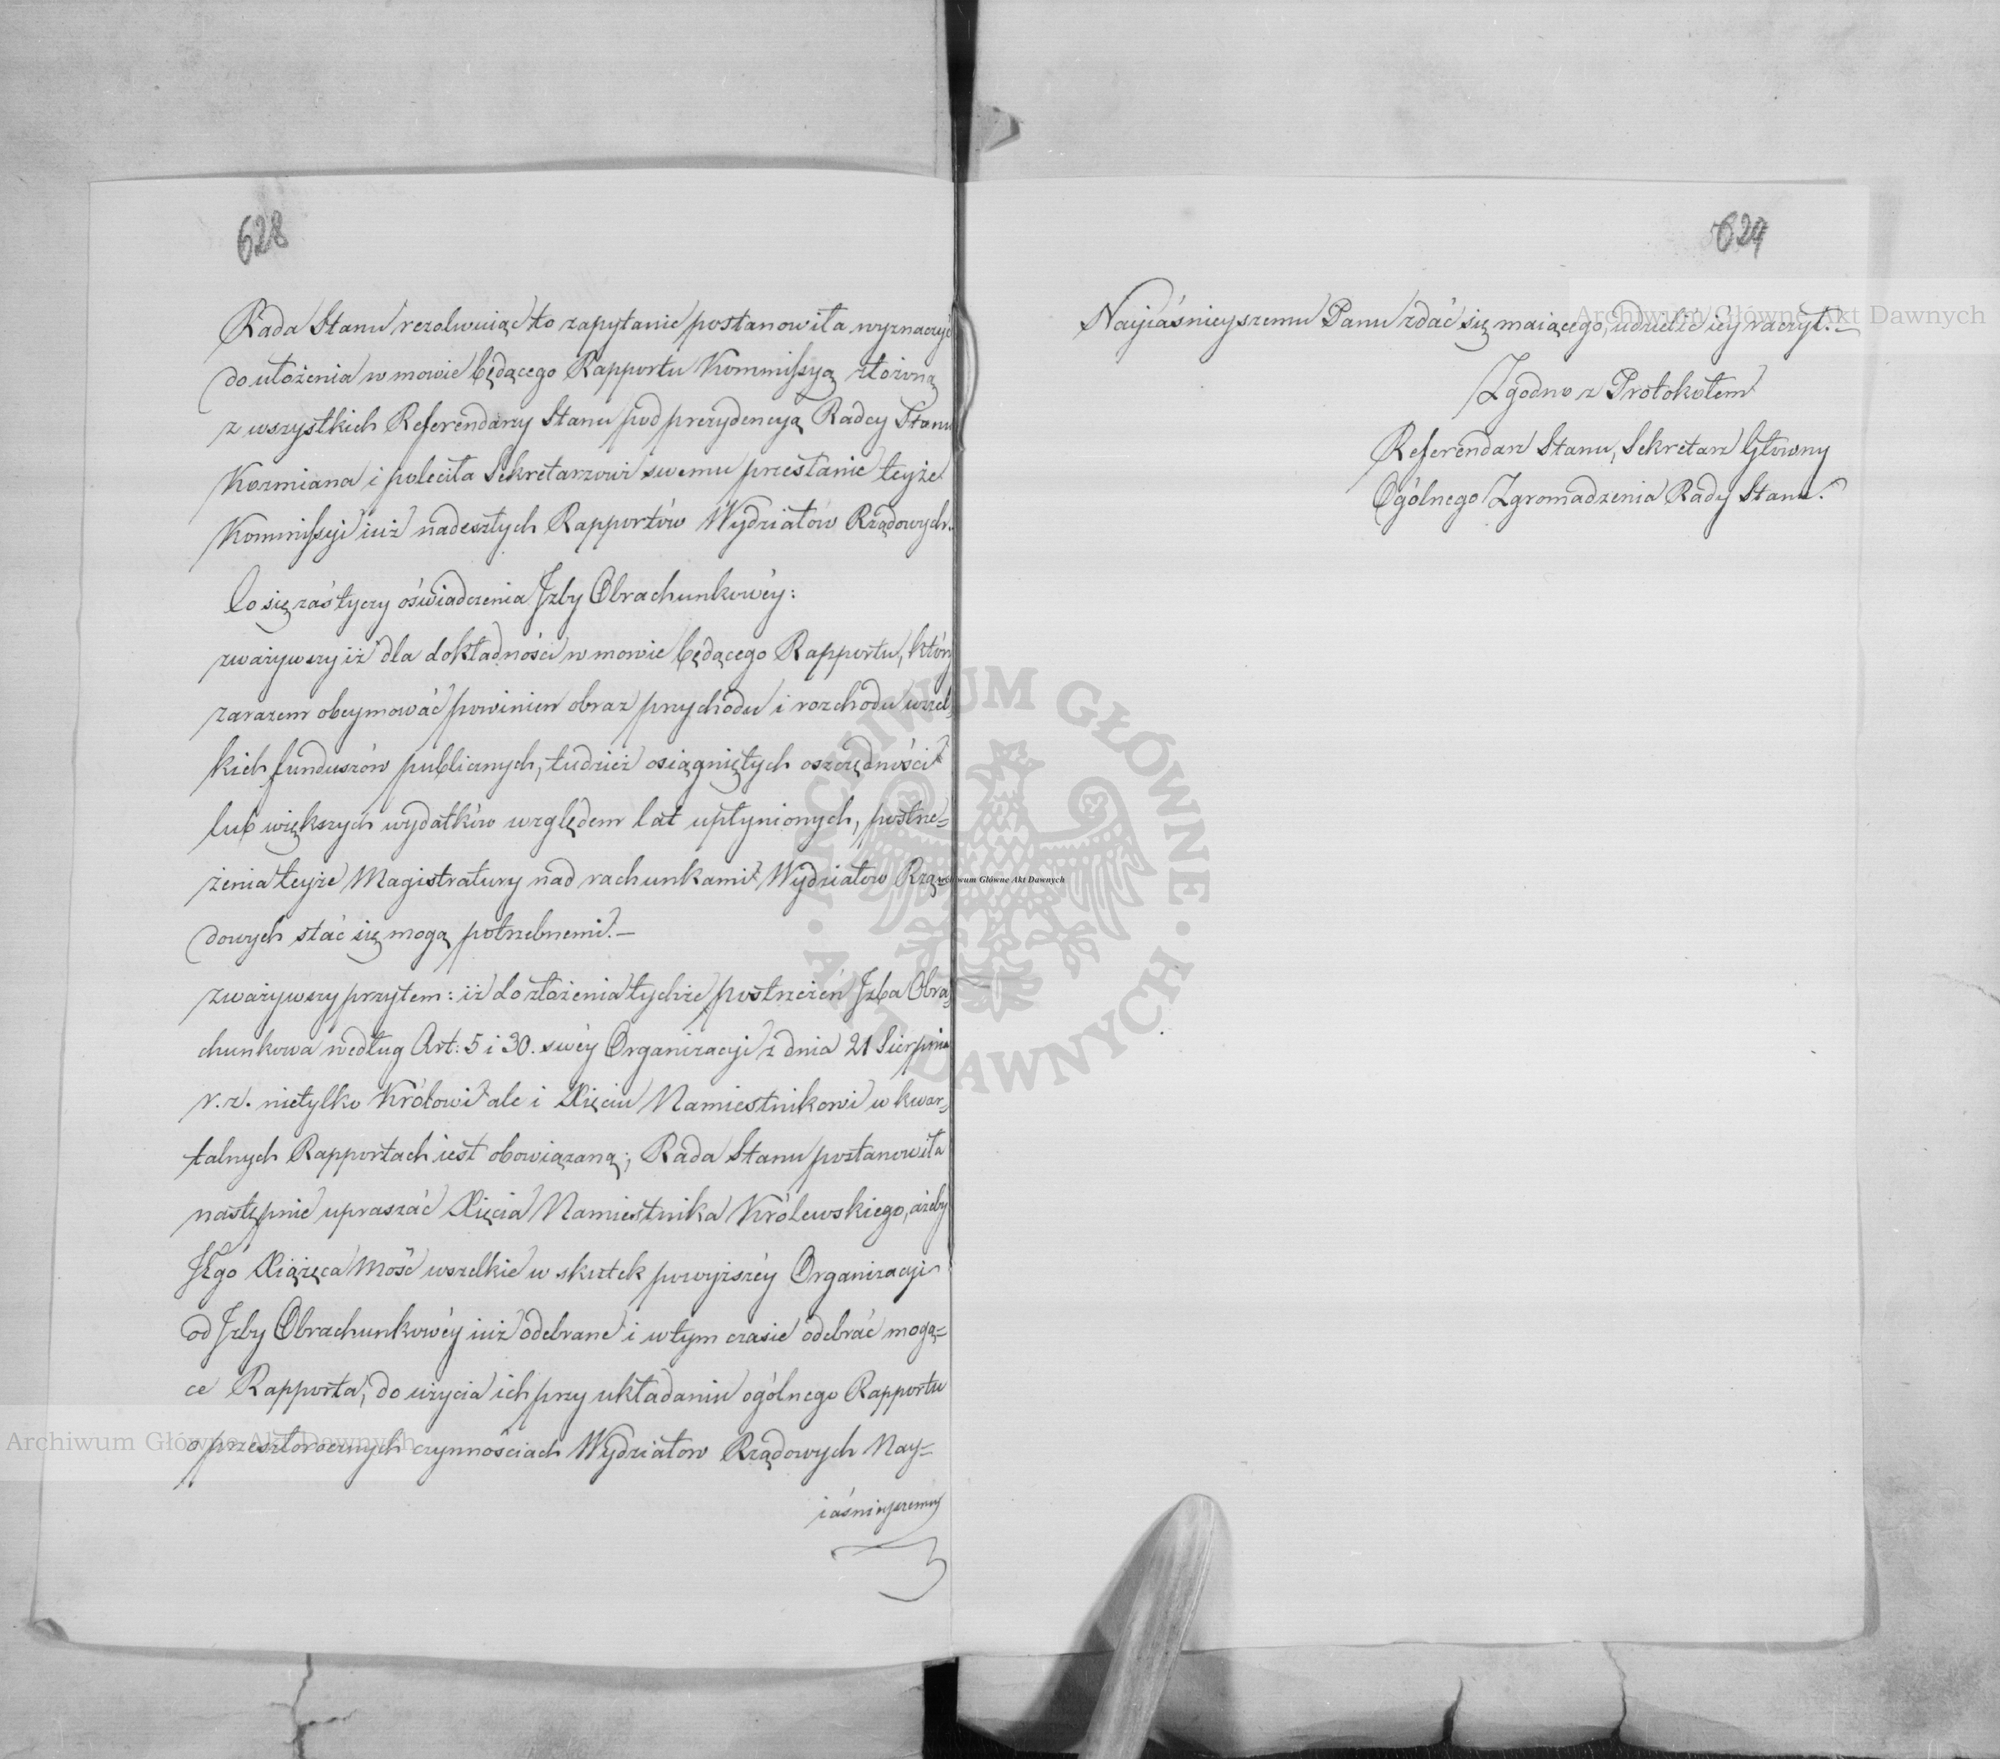 628
Rada Stanu rezolwuiąc to zapytanie postanowiła wyznaczyć
do ułożenia w mowie będącego Rapportu Kommissyą złożoną
z wszystkich Referendarzy Stanu pod prezydencyą Radcy Stanu
Koźmiana i poleciła Sekretarzowi swemu przesłanie teyże
Kommissyi iuż nadeszłych Rapportów Wydziałów Rządowych.
Co się zaś tyczy oświadczenia Jzby Obrachunkowéy:
zważywszy iż dla dokładności w mowie będącego Rapportu, który
zarazem obeymować powinien obraz przychodu i rozchodu wszel-
kich funduszów publicznych, tudzież osiągniętych oszczędności
lub większych wydatków względem lat upłynionych, postrze=
żenia teyże Magistratury nad rachunkami Wydziałów Rzą=
dowych stać się mogą potrzebnemi.—
zważywszy przytem: iż do złożenia tychże postrzeżeń Jzba Obra=
chunkowa według Art: 5 i 30. swéy Organizacyi z dnia 21 Sierpnia
r. z. nietylko Królowi ale i Xięciu Namiestnikowi w kwar=
talnych Rapportach iest obowiązaną; Rada Stanu postanowiła
następnie upraszać Xięcia Namiestnika Królewskiego, ażeby
JEgo Xiążęca Mość wszelkie w skutek powyższéy Organizacyi
od Jzby Obrachunkowéy iuż odebrane i w tym czasie odebrać mogą=
ce Rapporta, do użycia ich przy układaniu ogólnego Rapportu
o przeszłorocznych czynnościach Wydziałów Rządowych Nay=
iaśnieyszemu
629
Nayiaśnieyszemu Panu zdać się maiącego, udzielić iey raczył.—
Zgodno z Protokołem
Referendarz Stanu, Sekretarz Główny
Ogólnego Zgromadzenia Rady Stanu.
Archiwum Główne Akt Dawnych
Archiwum Główne Akt Dawnych
Archiwum Główne Akt Dawnych
ARCHIWUM GŁÓWNE · AKT DAWNYCH ·